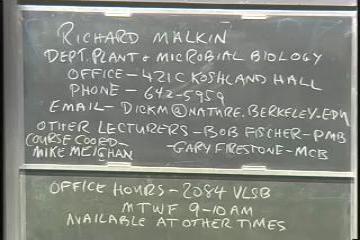 RICHARD MALKIN
DEPT. PLANT & MICROBIAL BIOLOGY
OFFICE - 421C KOSHLAND HALL
PHONE - 642-5959
EMAIL - DICKM@NATURE.BERKELEY.EDU
OTHER LECTURERS - BOB FISCHER - PMB
COURSE COORD - 
MIKE MEIGHAN
- GARY FIRESTONE - MCB
OFFICE HOURS - 2084 VLSB
MTWF 9-10AM
AVAILABLE AT OTHER TIMES